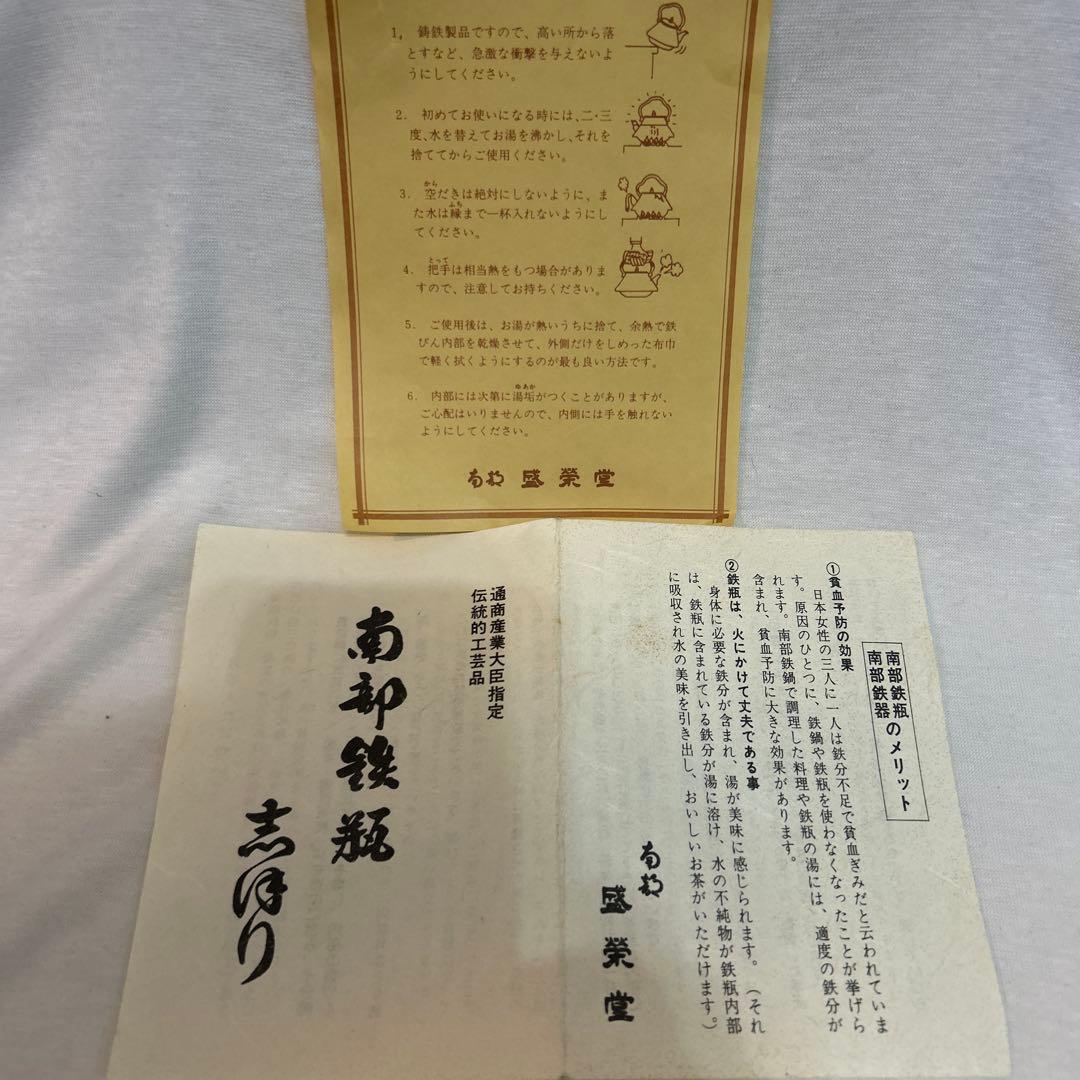 1. 鋳鉄製品ですので、高い所から落
とすなど、急激な衝撃を与えないよ
うにしてください。
2. 初めてお使いになる時には、二・三
度、水を替えてお湯を沸かし、それを
捨ててからご使用ください。
から
3. 空だきは絶対にしないように、ま
ふち
た水は縁まで一杯入れないようにし
てください。
とって
4. 把手は相当熱をもつ場合がありま
すので、注意してお持ちください。
5. ご使用後は、お湯が熱いうちに捨て、余熱で鉄
びん内部を乾燥させて、外側だけをしめった布巾
で軽く拭くようにするのが最も良い方法です。
ゆあか
6. 内部には次第に湯垢がつくことがありますが、
ご心配はいりませんので、内側には手を触れない
ようにしてください。
南部 盛榮堂
南部鉄瓶
南部鉄器
のメリット
①貧血予防の効果
日本女性の三人に一人は鉄分不足で貧血ぎみだと云われていま
す。原因のひとつに、鉄鍋や鉄瓶を使わなくなったことが挙げら
れます。南部鉄鍋で調理した料理や鉄瓶の湯には、適度の鉄分が
含まれ、貧血予防に大きな効果があります。
②鉄瓶は、火にかけて丈夫である事
身体に必要な鉄分が含まれ、湯が美味に感じられます。(それ
は、鉄瓶に含まれている鉄分が湯に溶け、水の不純物が鉄瓶内部
に吸収され水の美味を引き出し、おいしいお茶がいただけます。)
南部
盛榮堂
通商産業大臣指定
伝統的工芸品
南部鉄瓶
志ほり